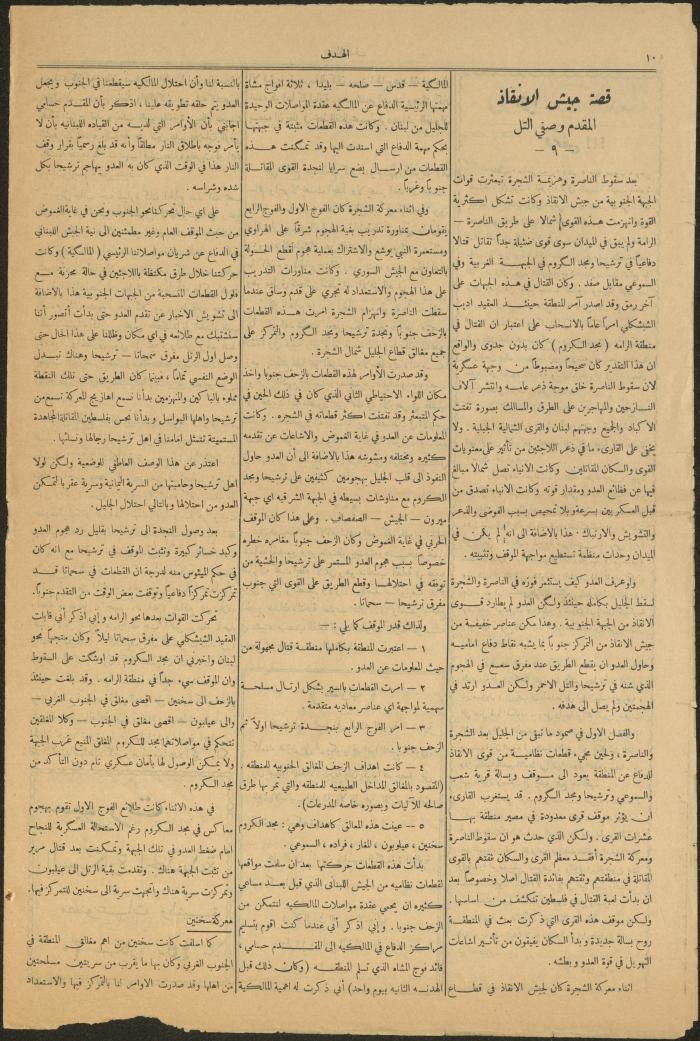 ١٠
الهدف
قصة جيش الانقاذ
المقدم وصفي التل
— ٩ —
بعد سقوط الناصرة وهزيمة الشجرة تبعثرت قوات
الجبهة الجنوبية من جيش الانقاذ وكانت تشكل اكثرية
القوة وانهزمت هذه القوى شمالا على طريق الناصرة —
الرامة ولم يبق في الميدان سوى قوى ضئيلة جداً تقاتل قتالا
دفاعياً في ترشيحا ومجد الكروم في الجبهة الغربية وفي
السموعي مقابل صفد . وكان القتال في هذه الجبهات على
آخر رمق وقد اصدر آمر المنطقة حينئذ العقيد اديب
الشيشكلي امراً عاماً بالانسحاب على اعتبار ان القتال في
منطقة الرامه ( مجد الكروم ) كان بدون جدوى والواقع
ان هذا التقدير كان صحيحاً ومضبوطاً من وجهة عسكرية
لان سقوط الناصرة خلق موجة ذعر عامه وانتشر آلاف
النازحين والمهاجرين على الطرق والمسالك بصورة تفتت
الاكباد والجميع وجهتهم لبنان والقرى الشمالية الجبلية . ولا
يخفى على القارىء ما في ذعر اللاجئين من تأثير على معنويات
القوى والسكان المقاتلين وكانت الانباء تصل شمالا مبالغ
فيها عن فظائع العدو ومقدار قوته وكانت الانباء تصدق من
قبل العسكريين بسرعة وبلا تمحيص بسبب الفوضى والذعر
والتشويش والارتباك . هذا بالاضافة الى انه لم يكن في
الميدان وحدات منظمة تستطيع مواجهة الموقف وتثبيته .
ولو عرف العدو كيف يستثمر فوزه في الناصرة والشجرة
لسقط الجليل بكامله حينئذ ولكن العدو لم يطارد قوى
الانقاذ من الجبهة الجنوبية . وهذا مكن عناصر خفيفة من
جيش الانقاذ من التمركز جنوباً بما يشبه نقاط دفاع امامية
وحاول العدو ان يقطع الطريق عند مفرق سعسع في الهجوم
الذي شنه في ترشيحا والتل الاحمر ولكن العدو ارتد في
الهجمتين ولم يصل الى هدفه .
والفضل الاول في صمود ما تبقى من الجليل بعد الشجرة
والناصرة ، ولحين مجيء قطعات نظامية من قوى الانقاذ
للدفاع عن المنطقة يعود الى موقف وبسالة قرية شعب
والسموعي وترشيحا ومجد الكروم . قد يستغرب القارىء
ان يؤثر موقف قرى معدودة في مصير منطقة بها
عشرات القرى . ولكن الذي حدث هو ان سقوط الناصرة
ومعركة الشجرة أفقد معظم القرى والسكان ثقتهم بالقوى
المقاتلة في منطقتهم وثقتهم بفائدة القتال اصلا وخصوصاً بعد
ان بدأت لعبة القتال في فلسطين تتكشف من اساسها .
ولكن موقف هذه القرى التي ذكرت بعث في المنطقة
روح بسالة جديدة وبدأ السكان يفيقون من تأثير اشاعات
التهويل في قوة العدو وبطشه .
اثناء معركة الشجرة كان لجيش الانقاذ في قطاع
المالكية — قدس — صلحه — بليدا ، ثلاثة افواج مشاة
مهمتها الرئيسية الدفاع عن المالكيه عقدة المواصلات الوحيدة
للجليل من لبنان . وكانت هذه القطعات مثبتة في جبهتها
بحكم مهمة الدفاع التي اسندت اليها وقد تمكنت هذه
القطعات من ارسال بضع سرايا لنجدة القوى المقاتلة
جنوباً وغرباً .
وفي اثناء معركة الشجرة كان الفوج الاول والفوج الرابع
يقومان بمناورة تدريب بغية الهجوم شرقاً على الهراوي
ومستعمرة النبي يوشع والاشتراك بعملية هجوم لقطع الحولة
بالتعاون مع الجيش السوري . وكانت مناورات التدريب
على هذا الهجوم والاستعداد له تجري على قدم وساق عندما
سقطت الناصرة وانهزام الشجرة امرت هذه القطعات
بالزحف جنوباً ونجدة ترشيحا ومجد الكروم والتمركز على
جميع مغالق قطاع الجليل شمال الشجرة .
وقد صدرت الأوامر لهذه القطعات بالزحف جنوبا واخذ
مكان اللواء الاحتياطي الثاني الذي كان في ذلك الحين في
حكم المتبعثر وقد تفتتت اكثر قطعاته في الشجره . وكانت
المعلومات عن العدو في غاية الغموض والاشاعات عن تقدمه
كثيره ومختلفه ومشوشه هذا بالاضافة الى أن العدو حاول
النفوذ الى قلب الجليل بهجومين كثيفين على ترشيحا ومجد
الكروم مع مناوشات بسيطه في الجبهة الشرقيه اي جهة
ميرون — الجيش — الصفصاف . وعلى هذا كان الموقف
الحربي في غاية الغموض وكان الزحف جنوباً مغامره خطره
خصوصاً بسبب هجوم العدو المستمر على ترشيحا والخشية من
توفقه في احتلالها وقطع الطريق على القوى التي جنوب
مفرق ترشيحا — سحماتا .
ولذلك قدر الموقف كما يلي : —
١ — اعتبرت المنطقة بكاملها منطقة قتال مجهولة من
حيث المعلومات عن العدو .
٢ — امرت القطعات بالسير بشكل ارتال مسلحة
سهمية لمواجهة اي عناصر معاديه متقدمة .
٣ — امر الفوج الرابع بنجدة ترشيحا اولاً ثم
الزحف جنوبا .
٤ — كانت اهداف الزحف المغالق الجنوبيه للمنطقه .
( المقصود بالمغالق المداخل الطبيعيه للمنطقه والتي تمر بها طرق
صالحه للآليات وبصوره خاصه المدرعات) .
٥ — عينت هذه المعالق كاهداف وهي : مجد الكروم
سخنين ، عيلبون ، المغار ، فراده ، السموعي .
بدأت هذه القطعات حركتها بعد ان سلمت مواقعها
لقطعات نظاميه من الجيش اللبناني الذي قبل بعد مساعي
كثيره ان يحمي عقدة مواصلات المالكيه لنتمكن من
الزحف جنوبا . وإني اذكر أني عندما كنت اقوم بتسليم
مراكز الدفاع في المالكيه الى المقدم حسامي ،
قائد فوج المشاه الذي تسلم المنطقه ( وكان ذلك قبل
الهدنه الثانيه بيوم واحد ) أني ذكرت له اهمية المالكية
بالنسبة لنا وأن احتلال المالكيه سيقطعنا في الجنوب ويجعل
العدو يتم حلقه تطويقه علينا ، اذكر بأن المقدم حسامي
اجابني بأن الأوامر التي لديه من القياده اللبنانيه بأن لا
يأمر فوجه باطلاق النار مطلقاً وانه قد بلغ رسمياً بقرار وقف
النار هذا في الوقت الذي كان به العدو يهاجم ترشيحا بكل
شده وشراسه .
على اي حال تحركنا نحو الجنوب ونحن في غاية الغموض
من حيث الموقف العام وغير مطمئنين الى نية الجيش اللبناني
في الدفاع عن شريان مواصلاتنا الرئيسي ( المالكية ) وكانت
حركتنا خلال طرق مكتظة باللاجئين في حالة محزنة مع
فلول القطعات المنسحبة من الجبهات الجنوبية هذا بالاضافة
الى تشويش الاخبار عن تقدم العدو حتى بدأت أتصور أننا
سنشتبك مع طلائعه في اي مكان وظللنا على هذا الحال حتى
وصل اول الرتل مفرق سحماتا — ترشيحا وهناك تبدل
الوضع النفسي تماماً ، فبينما كان الطريق حتى تلك النقطة
مملوه بالباكين والمنهزمين بدأنا نسمع اهازيج للمعركة تسمع من
ترشيحا واهلها البواسل وبدأنا نحس بفلسطين المقاتلة المجاهدة
المستميتة تتمثل امامنا في اهل ترشيحا رجالها ونسائها .
اعتذر عن هذا الوصف العاطفي للوضعية ولكن لولا
اهل ترشيحا وحاميتها من السرية اليمانية وسرية عقربا لتمكن
العدو من احتلالها وبالتالي احتلال الجليل .
بعد وصول النجدة الى ترشيحا بقليل رد هجوم العدو
وكبد خسائر كبيرة وتثبت الموقف في ترشيحا مع انه كان
في حكم الميئوس منه لدرجة ان القطعات في سحماتا قد
تمركزت تمركزاً دفاعياً وتوقفت بعض الوقت من التقدم جنوباً .
تحركت القوات بعدها نحو الرامه وإني اذكر أني قابلت
العقيد الشيشكلي على مفرق سحماتا ليلاً وكان متجهاً نحو
لبنان واخبرني ان مجد الكروم قد اوشكت على السقوط
وان الموقف سيء جداً في منطقة الرامه . وقد بلغت حينئذ
بالزحف الى سخنين — اقصى مغلق في الجنوب الغربي —
والى عيلبون — اقصى مغلق في الجنوب — وكلا المغلقين
تتحكم في مواصلاتهما مجد الكروم المغلق المنيع غرب الجبهة
ولا يمكن الوصول لها بأمان عسكري تام دون التأكد من
مجد الكروم .
في هذه الاثناء كانت طلائع الفوج الاول تقوم بهجوم
معاكس في مجد الكروم رغم الاستحالة العسكرية للنجاح
امام ضغط العدو في تلك الجبهة وتمكنت بعد قتال مرير
من تثبت الجبهة هناك . وتقدمت بقية الرتل الى عيلبون
وتمركزت سرية هناك واتجهت سرية الى سخنين للتمركز فيها .
معركة سخنين
كما اسلفت كانت سخنين من اهم مغالق المنطقة في
الجنوب الغربي وكان بها ما يقرب من سريتين مسلحتين
من اهلها وقد صدرت الاوامر لنا بالتمركز فيها والاستعداد